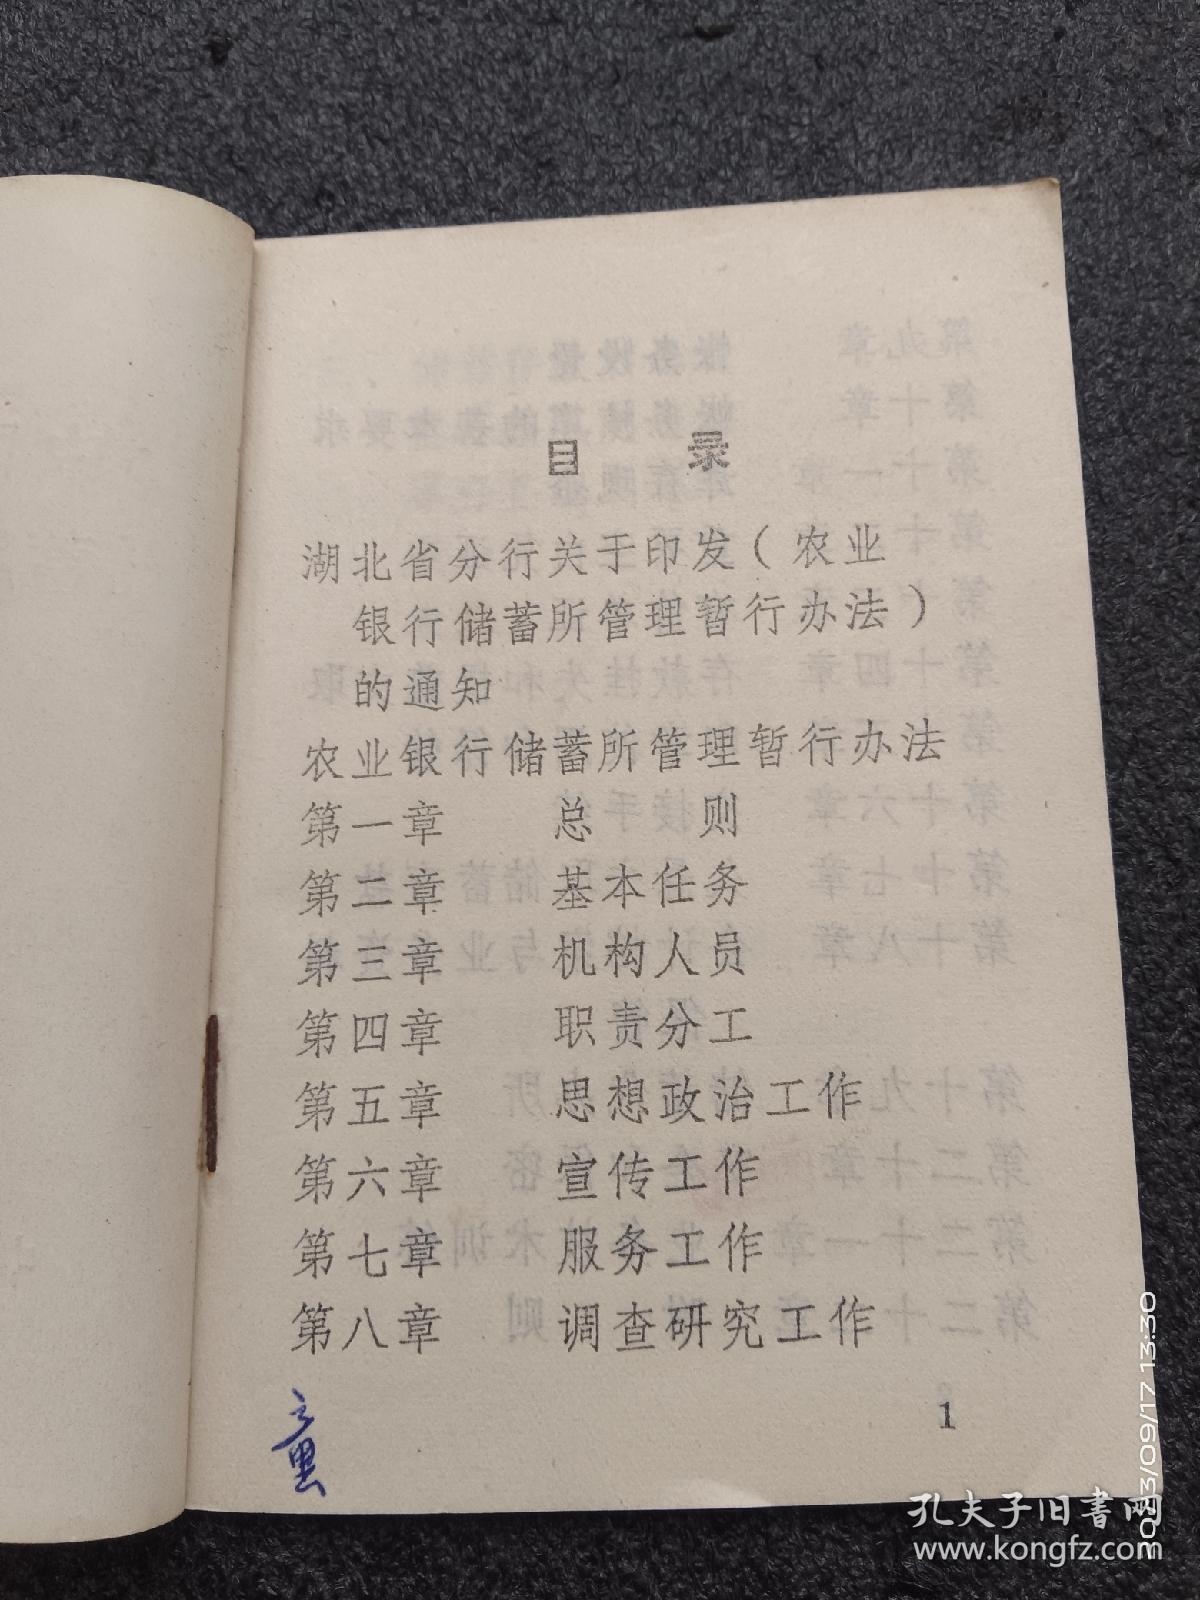 目 录
湖北省分行关于印发（农业
银行储蓄所管理暂行办法）
的通知
农业银行储蓄所管理暂行办法
第一章 总 则
第二章 基本任务
第三章 机构人员
第四章 职责分工
第五章 思想政治工作
第六章 宣传工作
第七章 服务工作
第八章 调查研究工作
1
孔夫子旧书网
www.kongfz.com
2023/09/17 13:30